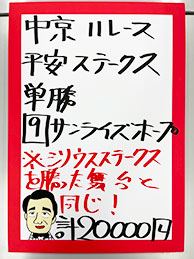 中京11レース
平安ステークス
単勝
9サンライズホープ
※シリウスステークス
を勝った舞台と
同じ！
計20000円